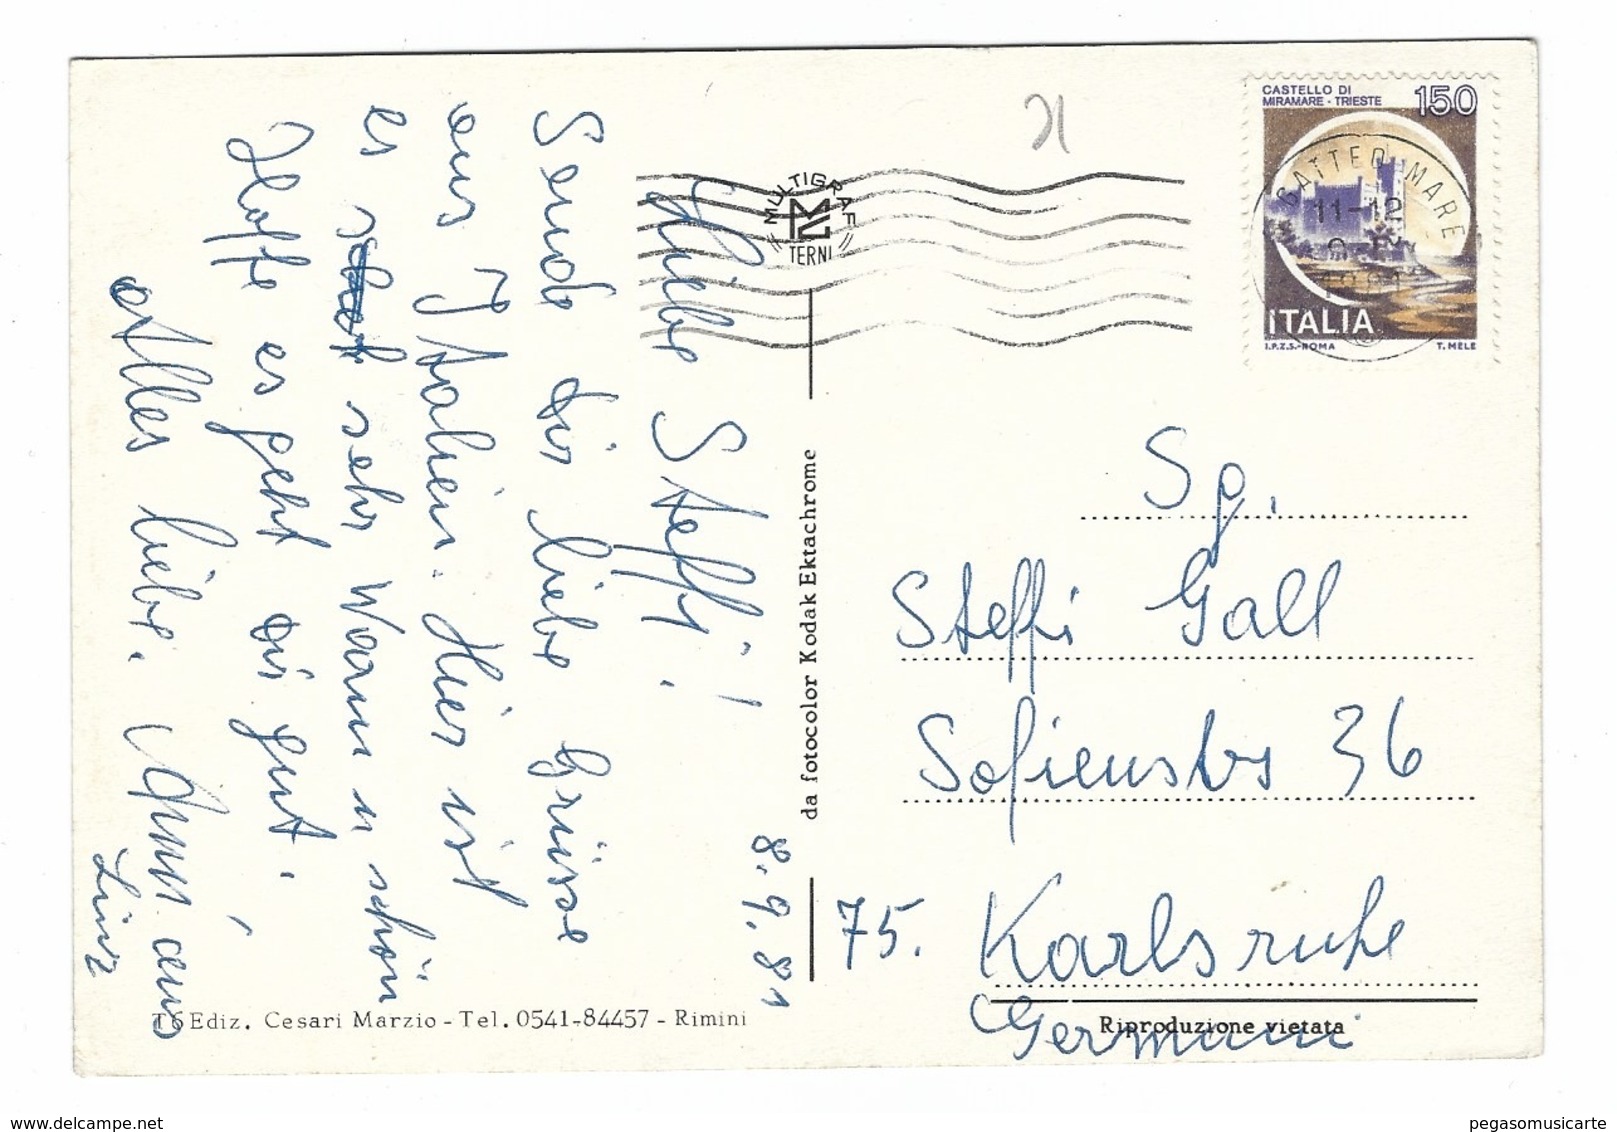 8.9.81
Liebe Steffi!
Sende dir liebe Grüsse
aus Italien. Hier ist
es sehr Warm u schön
Hoffe es geht dir gut.
Alles liebe.
aus
Linz
CASTELLO DI
MIRAMARE - TRIESTE
150
ITALIA
I.P.Z.S.-ROMA T. MELE
GATTEO MARE
11-12
MULTIGRAF
TERNI
Sp.
Steffi Gall
Sofienstrs 36
75. Karlsruhe
Germani
da fotocolor Kodak Ektachrome
T6 Ediz. Cesari Marzio - Tel. 0541-84457 - Rimini
Riproduzione vietata
pegasomusicarte
delcampe.net